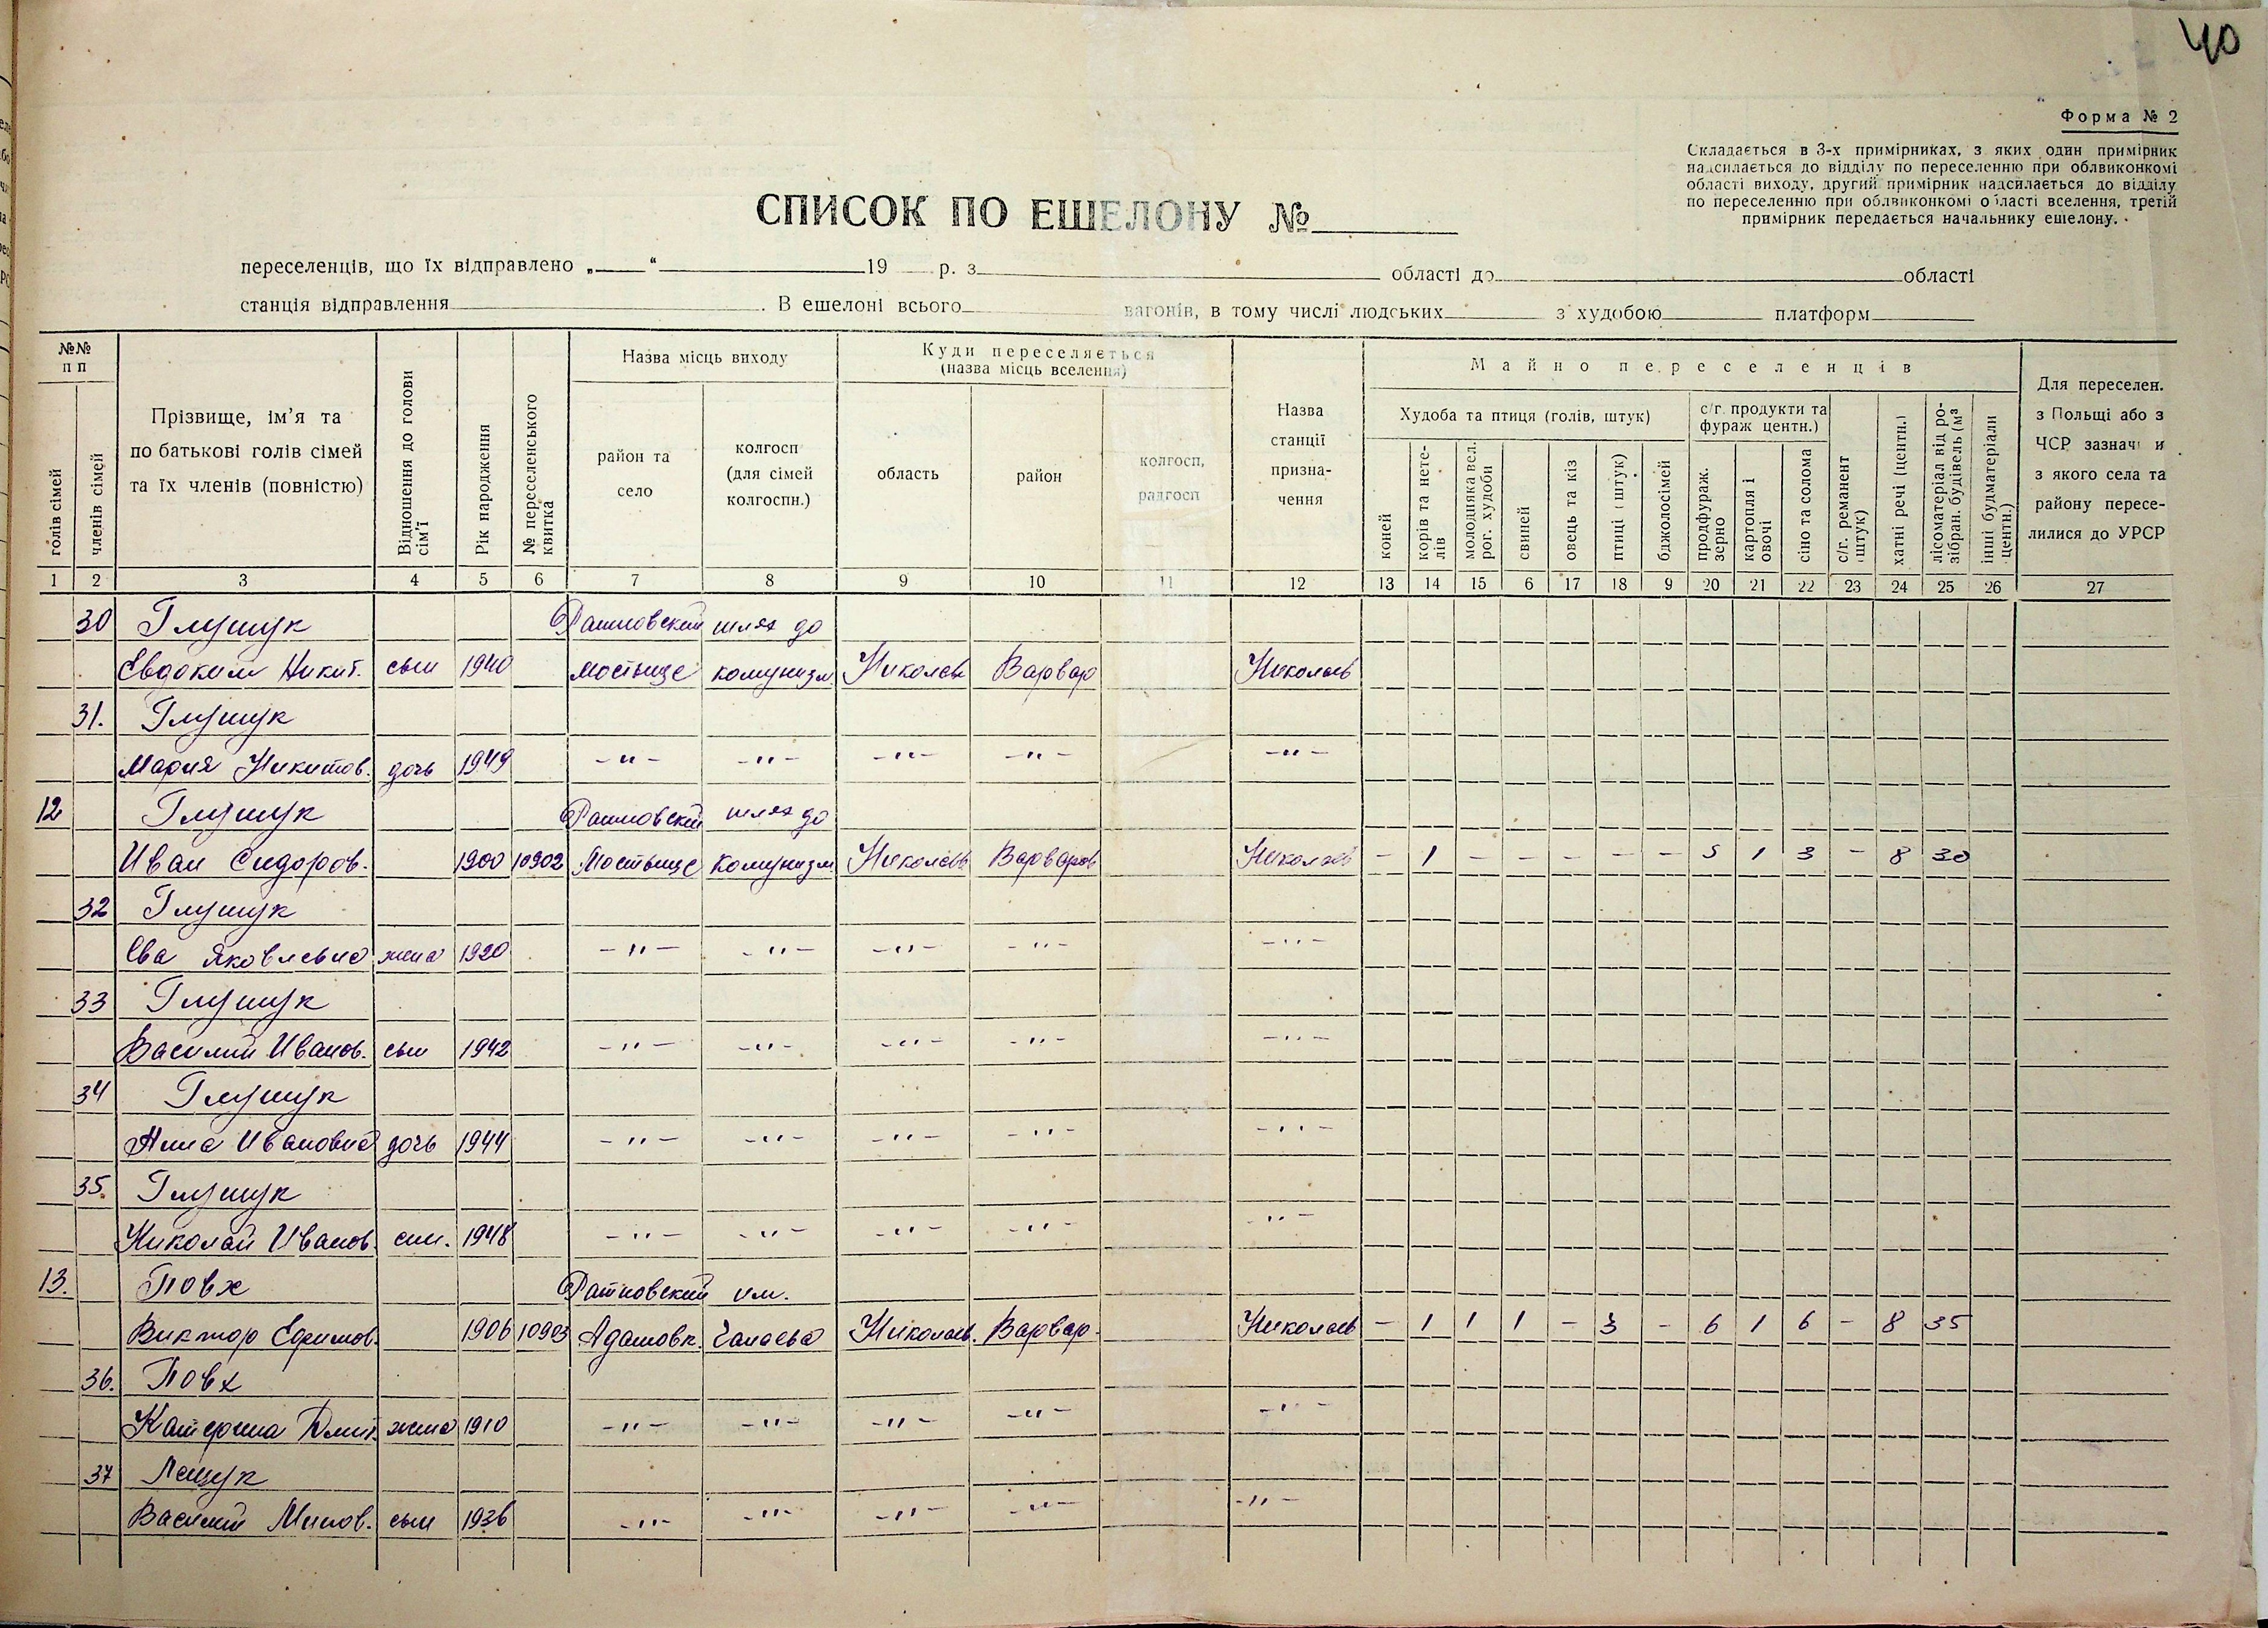 40
Форма № 2
Складається в 3-х примірниках, з яких один примірник
надсилається до відділу по переселенню при облвиконкомі
області виходу, другий примірник надсилається до відділу
по переселенню при облвиконкомі області вселення, третій
примірник передається начальнику ешелону.
СПИСОК ПО ЕШЕЛОНУ №
переселенців, що їх відправлено „ “ 19 р. з області до області
станція відправлення В ешелоні всього вагонів, в тому числі людських з худобою платформ
№№ п п
голів сімей
членів сімей
Прізвище, ім'я та по батькові голів сімей та їх членів (повністю)
Відношення до голови сім'ї
Рік народження
№ переселенського квитка
Назва місць виходу
район та село
колгосп (для сімей колгоспн.)
Куди переселяється (назва місць вселення)
область
район
колгосп, радгосп
Назва станції призна-чення
Майно переселенців
Худоба та птиця (голів, штук)
коней
корів та нете-лів
молодняка вел. рог. худоби
свиней
овець та кіз
птиці (штук)
бджолосімей
с/г. продукти та фураж центн.)
продфураж. зерно
картопля і овочі
сіно та солома
с/г. реманент (штук)
хатні речі (центн.)
лісоматеріал від ро-зібран. будівель (м³
інші будматеріали центн.)
Для переселен. з Польщі або з ЧСР зазнач и з якого села та району пересе-лилися до УРСР
1 2 3 4 5 6 7 8 9 10 11 12 13 14 15 6 17 18 9 20 21 22 23 24 25 26 27
30 Глущук Ратновский шлях до
Евдоким Никит. сын 1940 Мостище комунизм. Николаев Варвар Николаев
31. Глущук
Мария Никитов. дочь 1949 -"- -"- -"- -"- -"-
12 Глущук Ратновский шлях до
Иван Сидоров. 1900 10902 Мостыще комунизм Николаев Варваров Николаев - 1 - - - - - 5 1 3 - 8 30
32 Глущук
Ева Яковлевна жена 1920 -"- -"- -"- -"- -"-
33 Глущук
Василий Иванов. сын 1942 -"- -"- -"- -"- -"-
34 Глущук
Анна Ивановна дочь 1944 -"- -"- -"- -"- -"-
35. Глущук
Николай Иванов. сын. 1948 -"- -"- -"- -"- -"-
13. Повх Ратновский им.
Виктор Ефимов. 1906 10903 Адамовк. Чапаева Николаев. Варвар. Николаев - 1 1 1 - 3 - 6 1 6 - 8 35
36. Повх
Катерина Дмит. жена 1910 -"- -"- -"- -"- -"-
37 Лещук
Василий Минов. сын 1936 -"- -"- -"- -"- -"-